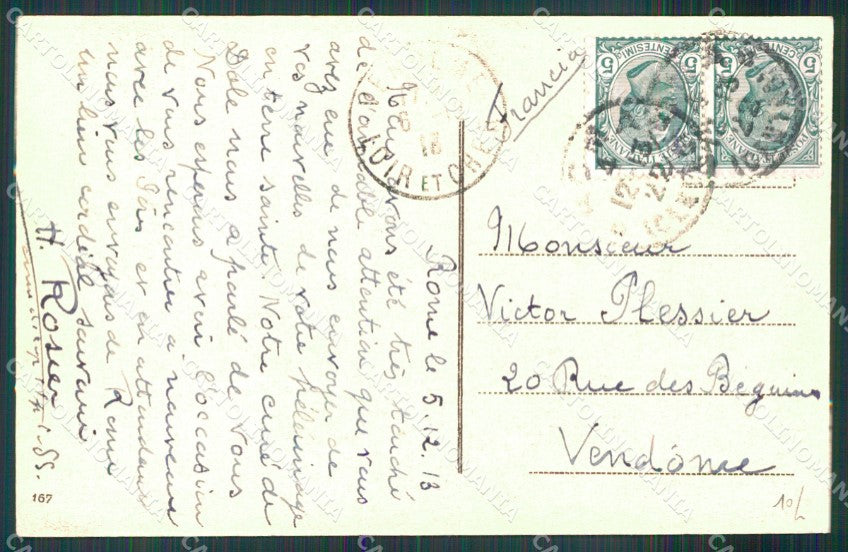 Rome le 5.12.13
Nous avons été très touché
de l'aimable attention que vous
avez eue de nous envoyer de
vos nouvelles de votre pélérinage
en terre sainte. Notre curé de
Dole nous a parlé de vous
Nous espérons avoir l'occasion
de vous rencontrer à nouveau
avec les Pères et en attendant
nous vous envoyons de Rome
un bien cordial souvenir
H. Rosier
167
Francia
Monsieur
Victor Plessier
20 Rue des Béguines
Vendôme
10/
LOIR ET CHER
5 CENTESIMI 5
POSTE ITALIANE
5 CENTESIMI 5
POSTE ITALIANE
CARTOLINOMANIA